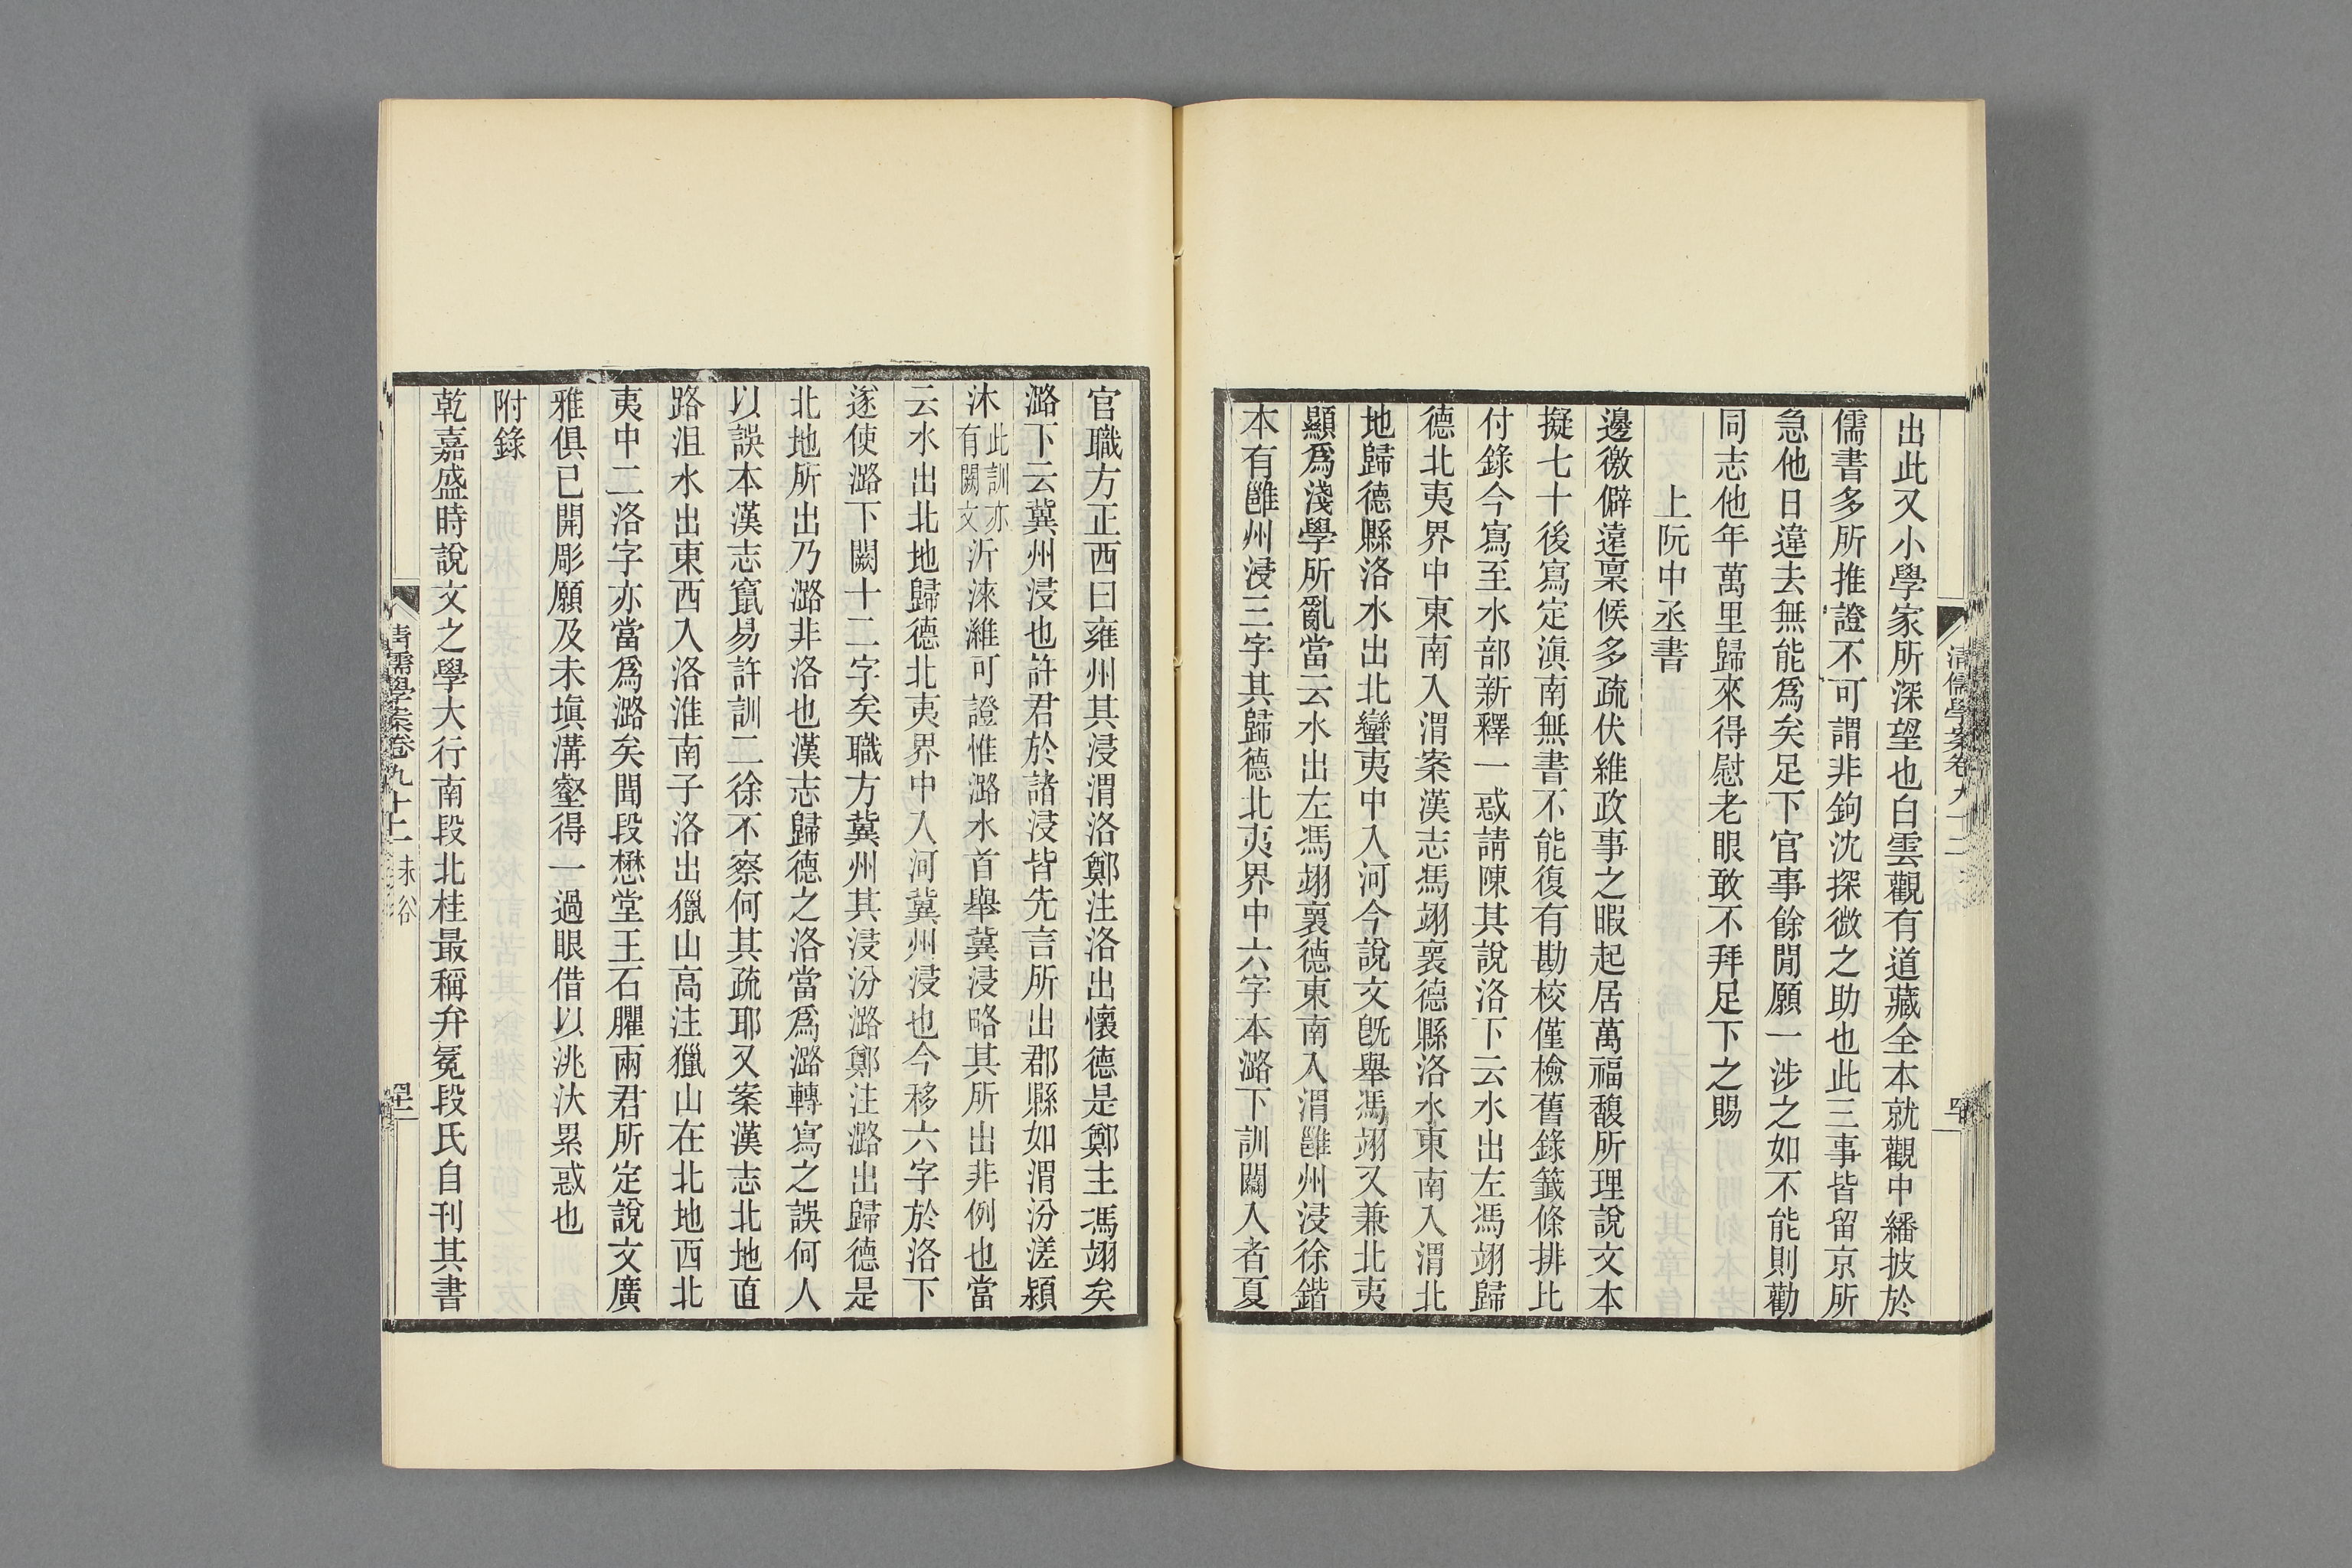 出此又小學家所深望也白雲觀有道藏全本就觀中繙披於
儒書多所推證不可謂非鉤沈探微之助也此三事皆留京所
急他日違去無能爲矣足下官事餘閒願一涉之如不能則勸
同志他年萬里歸來得慰老眼敢不拜足下之賜
上阮中丞書
邊徼僻遠稟候多疏伏維政事之暇起居萬福馥所理說文本
擬七十後寫定滇南無書不能復有勘校僅檢舊錄籤條排比
付錄今寫至水部新釋一惑請陳其說洛下云水出左馮翊歸
德北夷界中東南入渭案漢志馮翊褱德縣洛水東南入渭北
地歸德縣洛水出北蠻夷中入河今說文旣舉馮翊又兼北夷
顯爲淺學所亂當云水出左馮翊褱德東南入渭雝州浸徐鍇
本有雝州浸三字其歸德北夷界中六字本潞下訓闌入者夏
官職方正西曰雍州其浸渭洛鄭注洛出懷德是鄭主馮翊矣
潞下云冀州浸也許君於諸浸皆先言所出郡縣如渭汾溠潁
沭此訓亦有闕文沂淶濰可證惟潞水首舉冀浸略其所出非例也當
云水出北地歸德北夷界中入河冀州浸也今移六字於洛下
遂使潞下闕十二字矣職方冀州其浸汾潞鄭注潞出歸德是
北地所出乃潞非洛也漢志歸德之洛當爲潞轉寫之誤何人
以誤本漢志竄易許訓二徐不察何其疏耶又案漢志北地直
路沮水出東西入洛淮南子洛出獵山高注獵山在北地西北
夷中二洛字亦當爲潞矣聞段懋堂王石臞兩君所定說文廣
雅俱已開彫願及未塡溝壑得一過眼借以洮汏累惑也
附錄
乾嘉盛時說文之學大行南段北桂最稱弁冕段氏自刊其書
清儒學案卷九十二 未谷